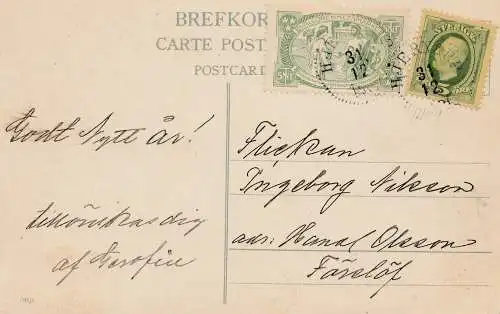 BREFKOR
CARTE POST
POSTCARD
SVERIGE
31
12
31
12
Godt Nytt år!
tillönskas dig
af
Flickan
Ingeborg Nilsson
adr: Hansd. Olsson
Förslöf